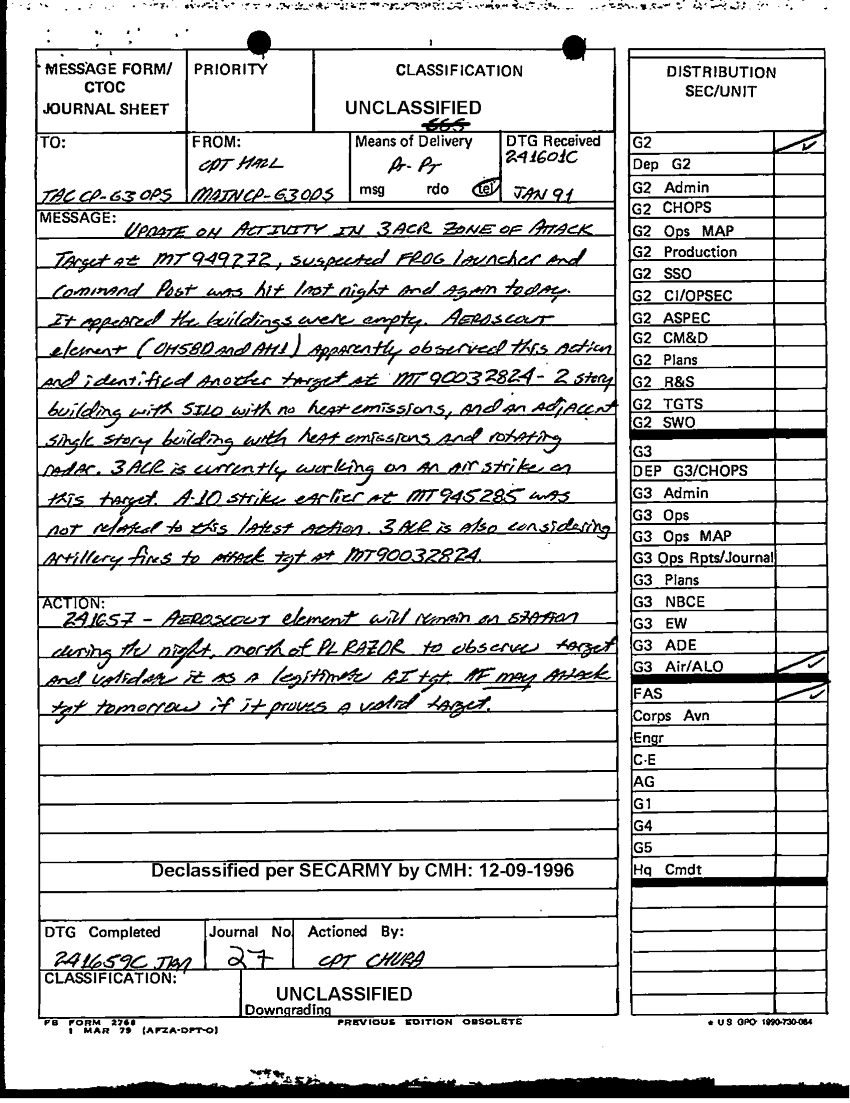 MESSAGE FORM/
CTOC
JOURNAL SHEET
PRIORITY
CLASSIFICATION
UNCLASSIFIED
TO:
TAC CP-G3 OPS
FROM:
CPT HALL
MAIN CP-G3 OPS
Means of Delivery
msg rdo tel
DTG Received
241601C
JAN 91
MESSAGE:
UPDATE ON ACTIVITY IN 3ACR ZONE OF ATTACK
Target at MT949272, suspected FROG launcher and
Command Post was hit last night and again today.
It appeared the buildings were empty. AEROSCOUT
element (OH58D and AH1) apparently observed this action
and identified another target at MT90032824 - 2 story
building with SILO with no heat emissions, and an adjacent
single story building with heat emissions and rotating
radar. 3ACR is currently working on an air strike on
this target. A-10 strike earlier at MT945285 was
not related to this latest action. 3ACR is also considering
artillery fires to attack tgt at MT90032824.
ACTION:
241657 - AEROSCOUT element will remain on station
during the night, north of PL RAZOR to observe target
and validate it as a legitimate AI tgt. AF may attack
tgt tomorrow if it proves a valid target.
Declassified per SECARMY by CMH: 12-09-1996
DTG Completed
241659C JAN
Journal No.
27
Actioned By:
CPT CHURA
CLASSIFICATION:
UNCLASSIFIED
Downgrading
FB FORM 2768
1 MAR 79 (AFZA-DPT-O)
PREVIOUS EDITION OBSOLETE
DISTRIBUTION
SEC/UNIT
G2
Dep G2
G2 Admin
G2 CHOPS
G2 Ops MAP
G2 Production
G2 SSO
G2 CI/OPSEC
G2 ASPEC
G2 CM&D
G2 Plans
G2 R&S
G2 TGTS
G2 SWO
G3
DEP G3/CHOPS
G3 Admin
G3 Ops
G3 Ops MAP
G3 Ops Rpts/Journal
G3 Plans
G3 NBCE
G3 EW
G3 ADE
G3 Air/ALO
FAS
Corps Avn
Engr
C-E
AG
G1
G4
G5
Hq Cmdt
* US GPO 1990-730-084